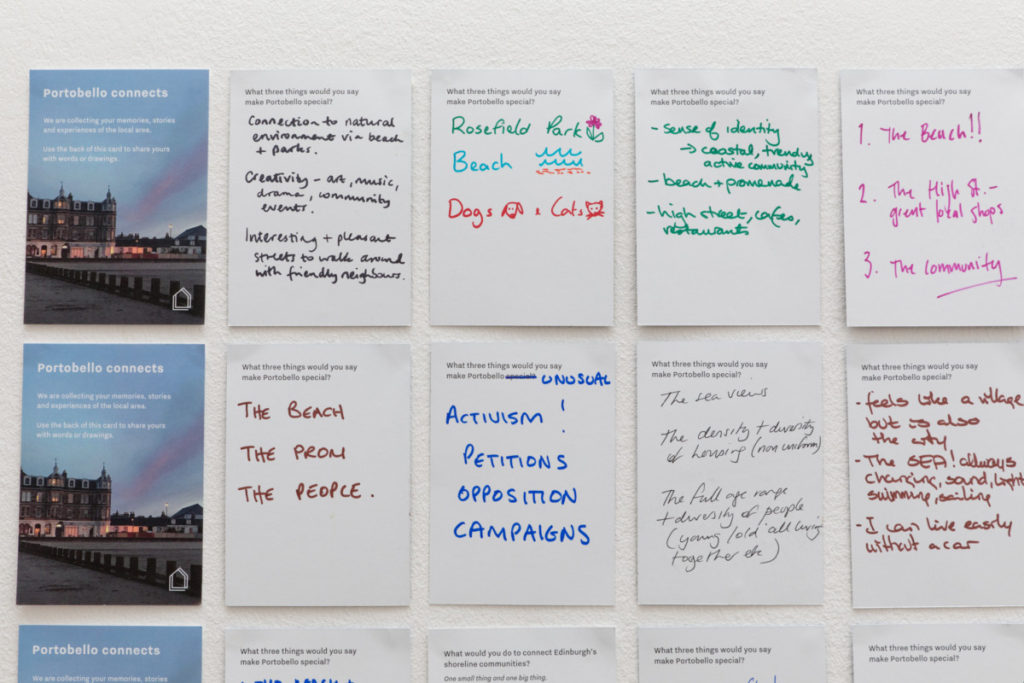 Portobello connects
We are collecting your memories, stories
and experiences of the local area.
Use the back of this card to share yours
with words or drawings.
What three things would you say
make Portobello special?
Connection to natural
environment via beach
+ parks.
Creativity – art, music,
drama, community
events.
Interesting + pleasant
streets to walk around
with friendly neighbours.
What three things would you say
make Portobello special?
Rosefield Park
Beach
Dogs & Cats
What three things would you say
make Portobello special?
- sense of identity
→ coastal, trendy,
active community
- beach + promenade
- high street, cafes,
restaurants
What three things would you say
make Portobello special?
1. The Beach!!
2. The High St. -
great local shops
3. The Community
Portobello connects
We are collecting your memories, stories
and experiences of the local area.
Use the back of this card to share yours
with words or drawings.
What three things would you say
make Portobello special?
THE BEACH
THE PROM
THE PEOPLE.
What three things would you say
make Portobello special? UNUSUAL
ACTIVISM!
PETITIONS
OPPOSITION
CAMPAIGNS
What three things would you say
make Portobello special?
The sea views
The density + diversity
of housing (non uniform)
The full age range
+ diversity of people
(young/old all living
together etc)
What three things would you say
make Portobello special?
- feels like a village
but is also
the city
- The SEA! always
changing, sand, light
swimming, sailing
- I can live easily
without a car
Portobello connects
We are collecting your memories, stories
What three things would you say
make Portobello special?
What would you do to connect Edinburgh's
shoreline communities?
One small thing and one big thing.
What three things would you say
make Portobello special?
What three things would you say
make Portobello special?